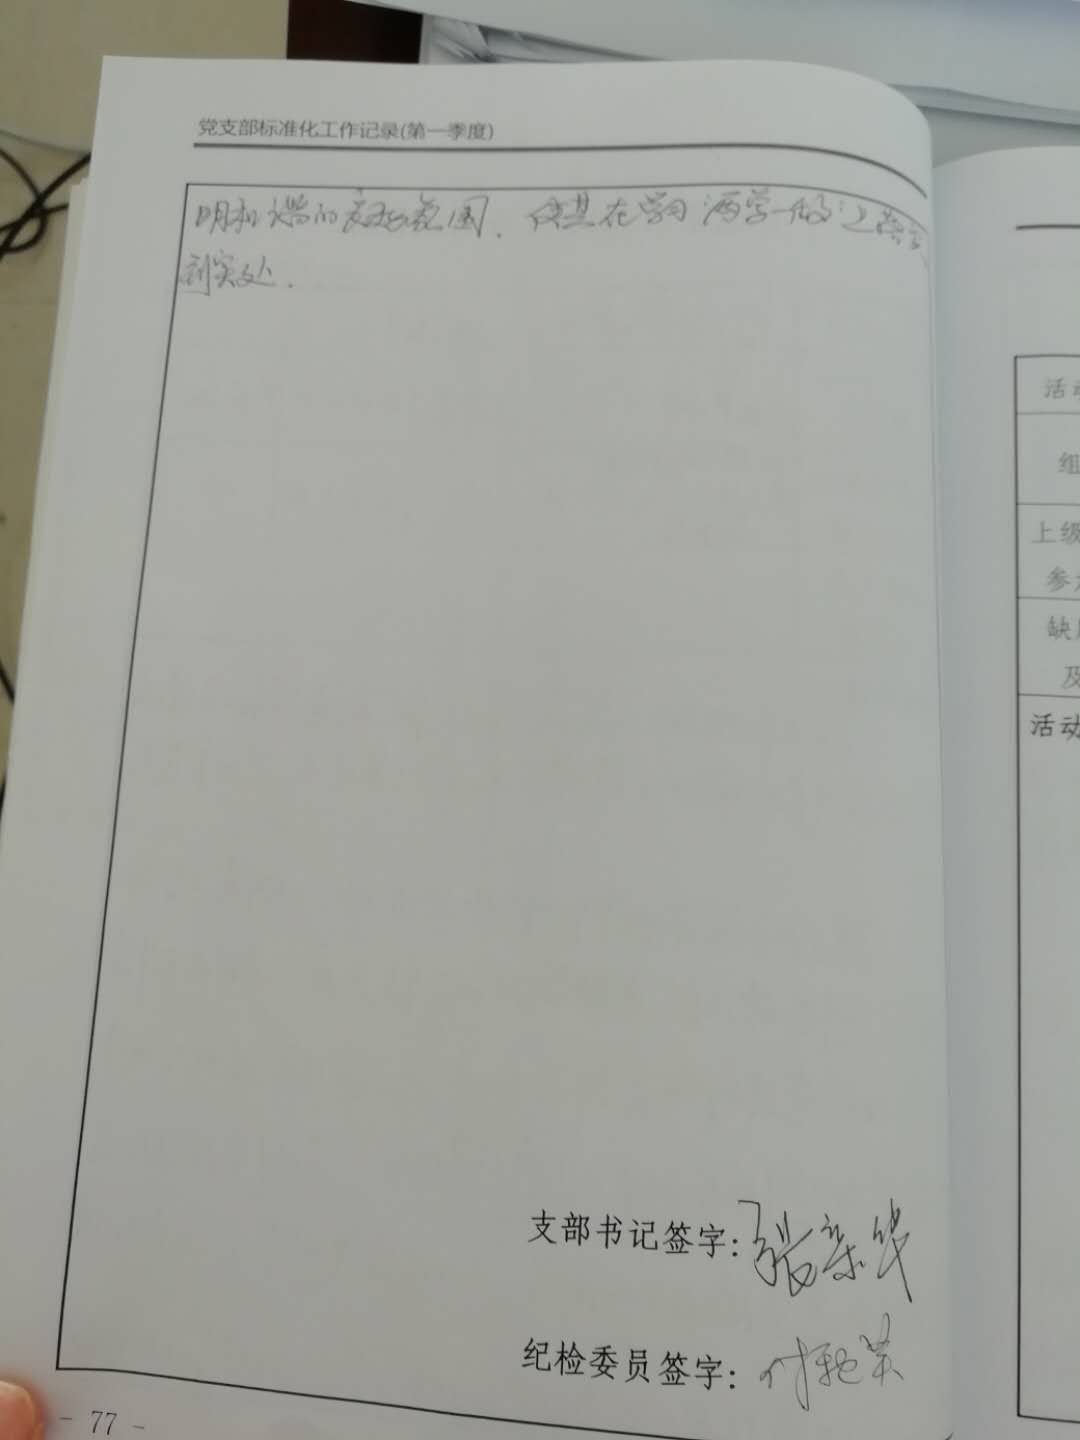 党支部标准化工作记录(第一季度)
明和谐的 氛围，使其在学习两学一做
到实处.
支部书记签字:张荣华
纪检委员签字:付艳英
- 77 -
活动
组
上级
参
缺
及
活动